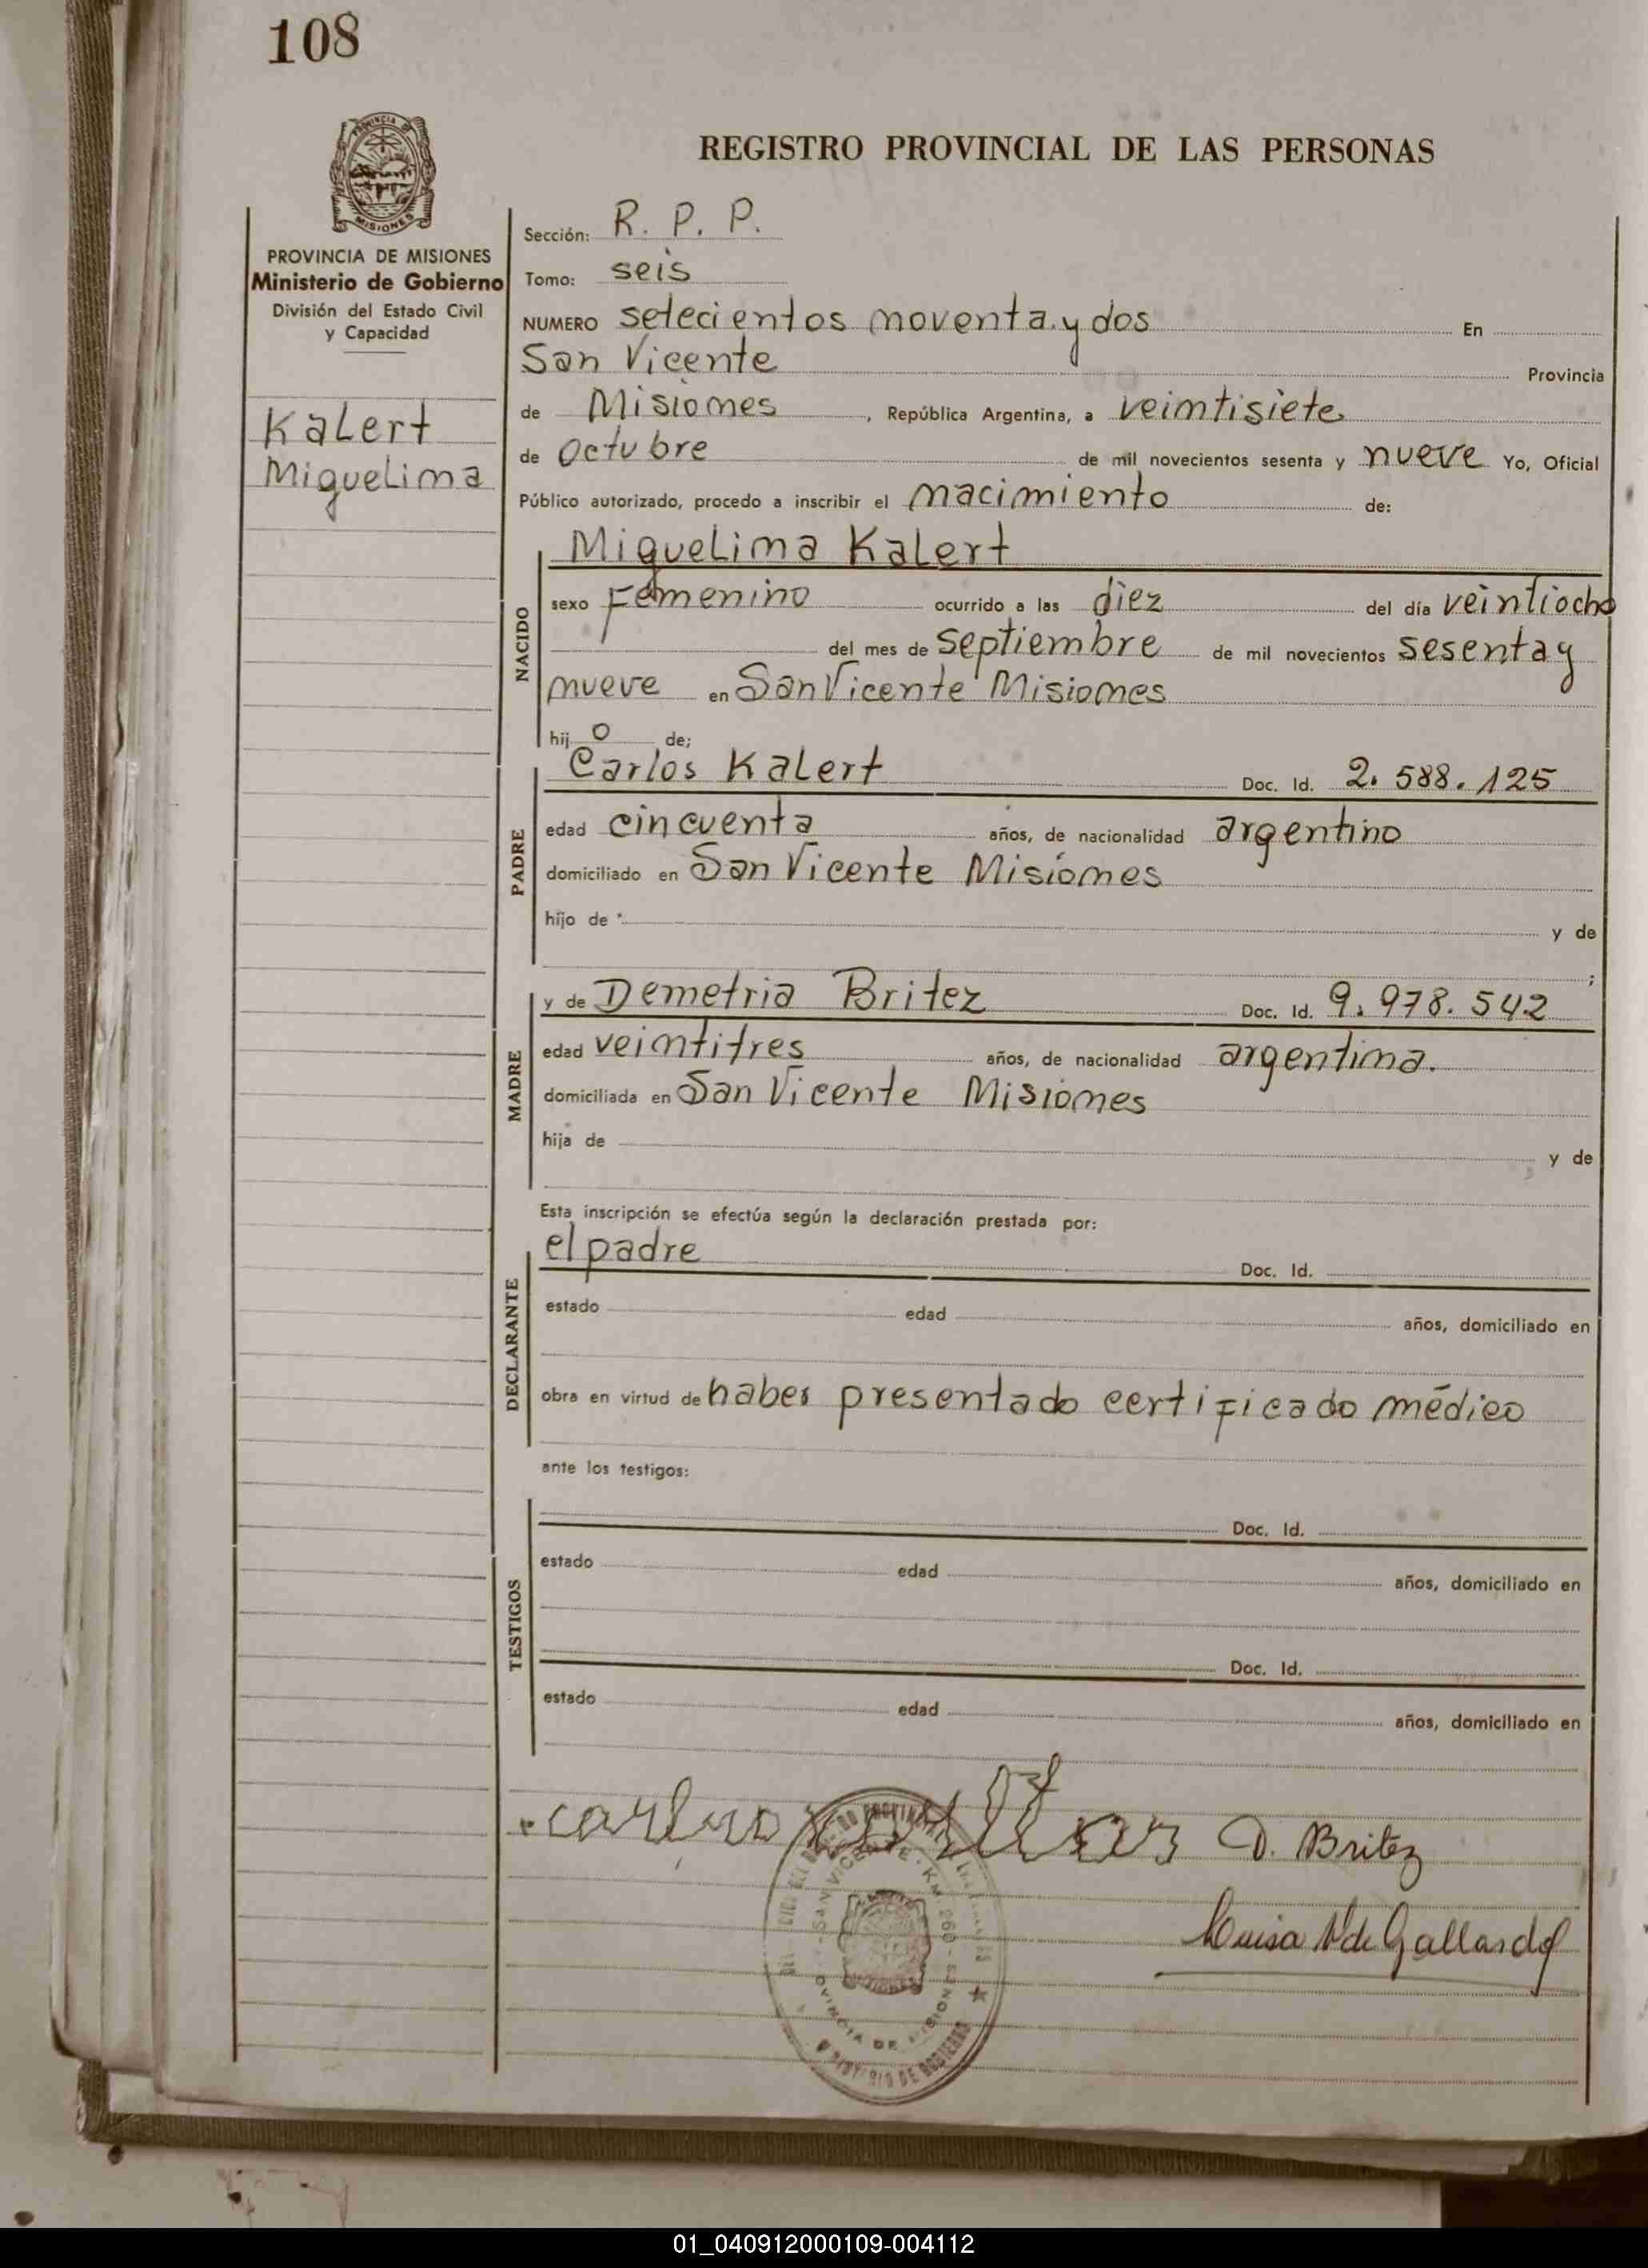 108
PROVINCIA DE
MISIONES
REGISTRO PROVINCIAL DE LAS PERSONAS
PROVINCIA DE MISIONES
Ministerio de Gobierno
División del Estado Civil
y Capacidad
Kalert
Miguelina
Sección: R. P. P.
Tomo: seis
NUMERO setecientos noventa y dos En
San Vicente Provincia
de Misiones, República Argentina, a veintisiete
de Octubre de mil novecientos sesenta y nueve Yo, Oficial
Público autorizado, procedo a inscribir el nacimiento de:
NACIDO
Miguelina Kalert
sexo Femenino ocurrido a las diez del día veintiocho
del mes de septiembre de mil novecientos sesenta y
nueve en San Vicente Misiones
hij o de;
PADRE
Carlos Kalert Doc. Id. 2.588.125
edad cincuenta años, de nacionalidad argentino
domiciliado en San Vicente Misiones
hijo de y de
;
MADRE
y de Demetria Britez Doc. Id. 9.978.542
edad veintitres años, de nacionalidad argentina.
domiciliada en San Vicente Misiones
hija de y de
Esta inscripción se efectúa según la declaración prestada por:
DECLARANTE
el padre Doc. Id.
estado edad años, domiciliado en
obra en virtud de haber presentado certificado médico
ante los testigos:
TESTIGOS
Doc. Id.
estado edad años, domiciliado en
Doc. Id.
estado edad años, domiciliado en
D. Britez
Luisa N de Gallardo
SAN VICENTE - KM 260 -
PROVINCIA DE MISIONES
MINISTERIO DE GOBIERNO
01_040912000109-004112